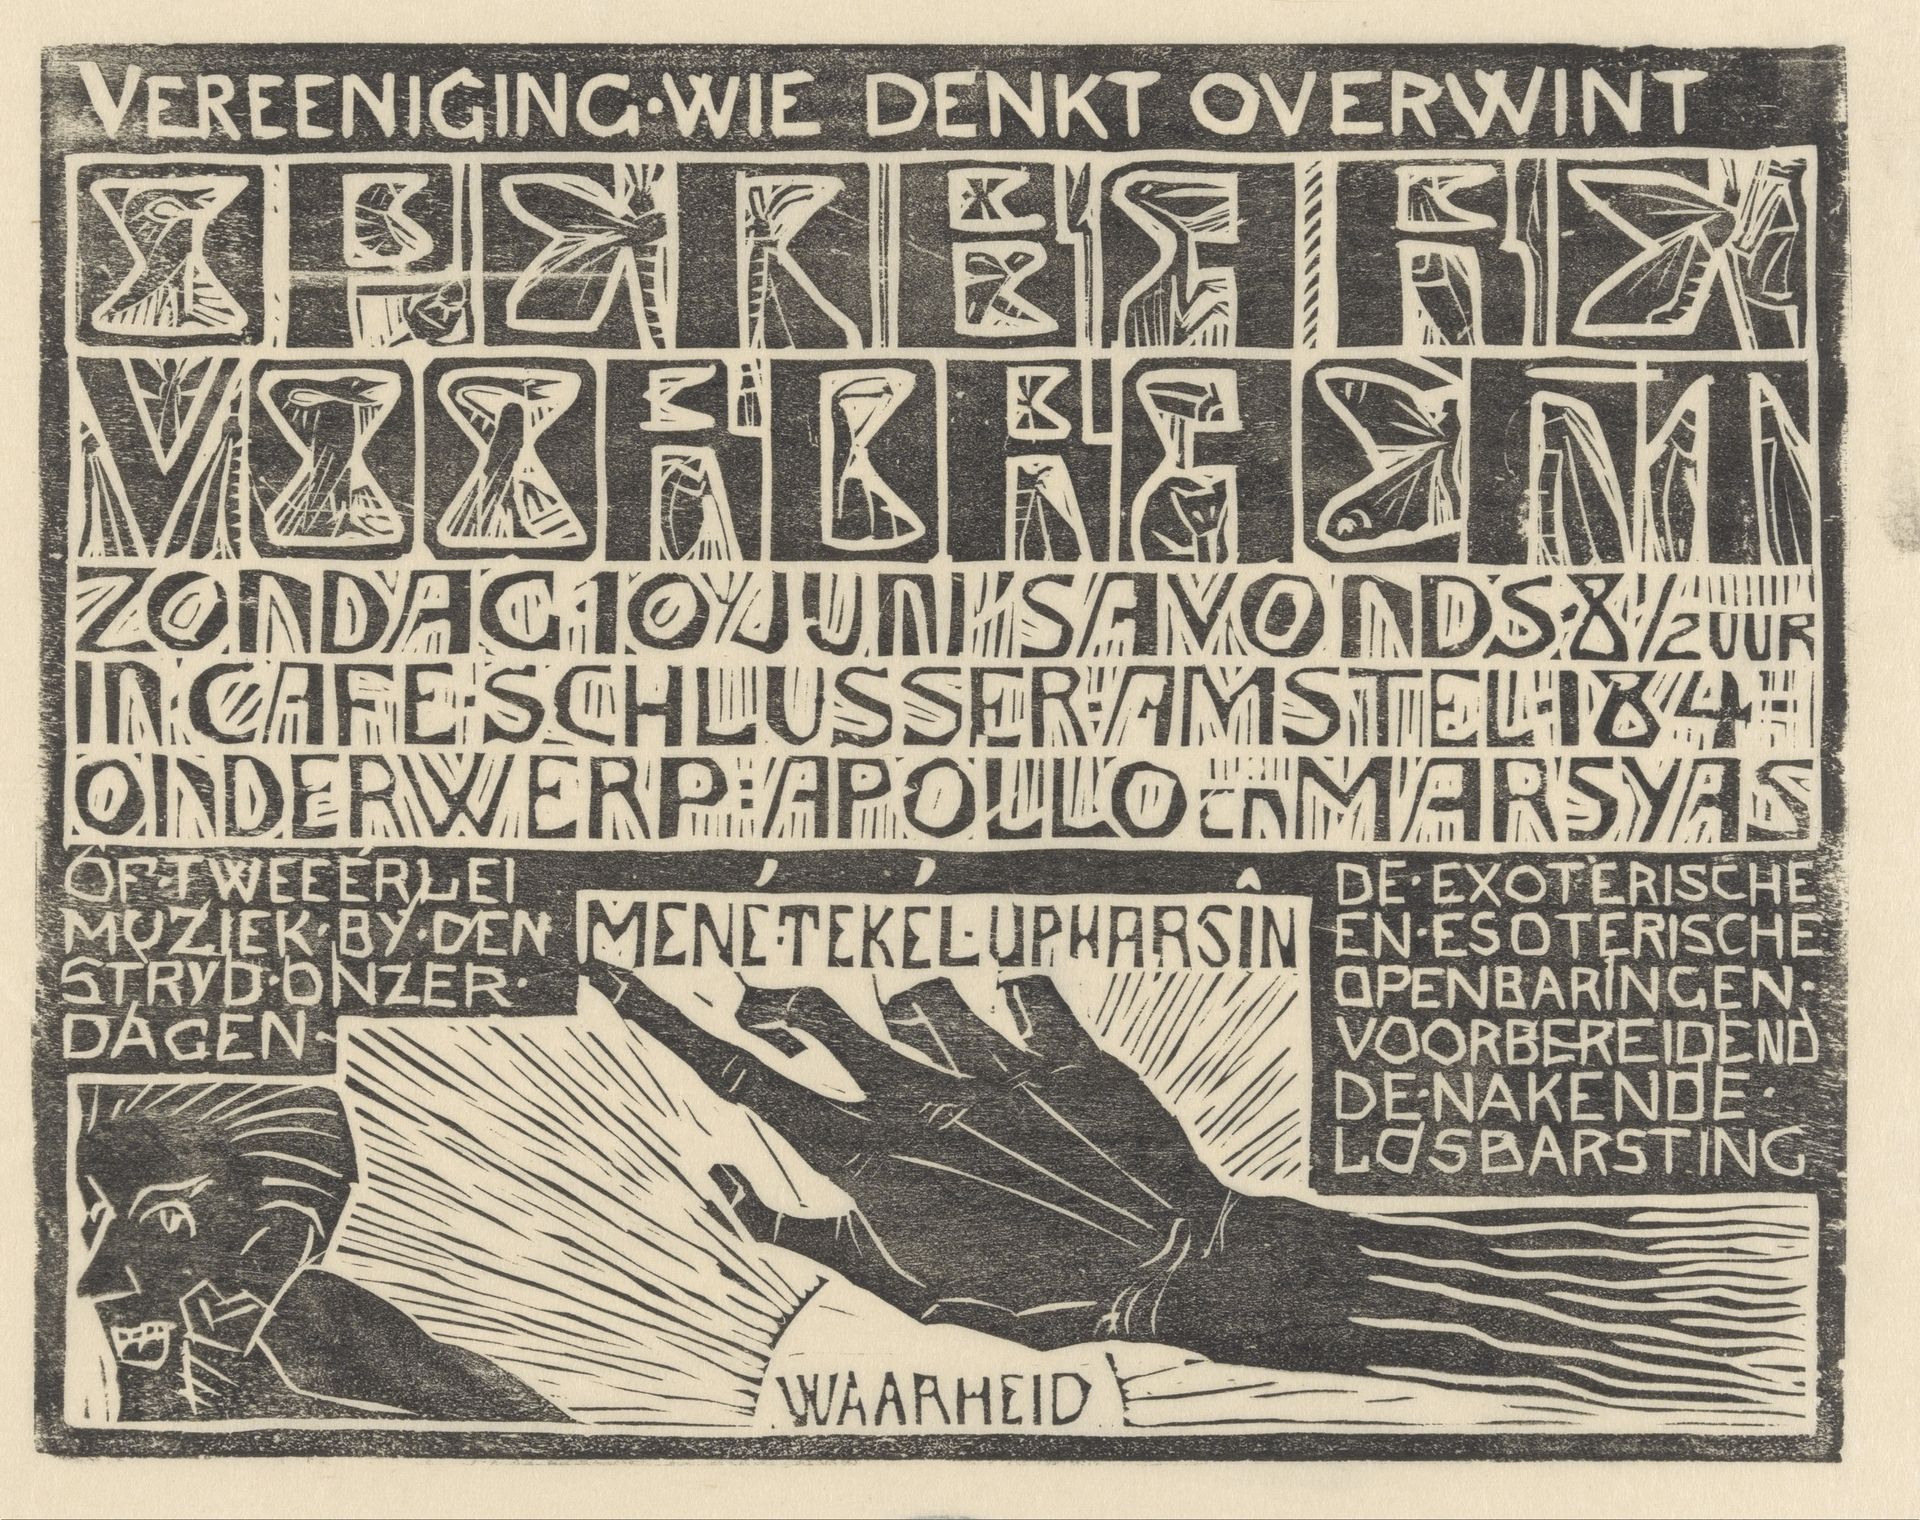 VEREENIGING·WIE DENKT OVERWINT
OPENBARE
VOORDRACHT
ZONDAG·10 JUNI 'S AVONDS·8 1/2 UUR
IN CAFE·SCHLUSSER·AMSTEL·184
ONDERWERP:APOLLO en MARSYAS
OF·TWEEËRLEI
MUZIEK·BY·DEN
STRYD·ONZER·
DAGEN·
MENÉ·TEKÉL·UPHARSÎN
DE·EXOTERISCHE
EN·ESOTERISCHE
OPENBARINGEN·
VOORBEREIDEND
DE·NAKENDE·
LOSBARSTING
WAARHEID